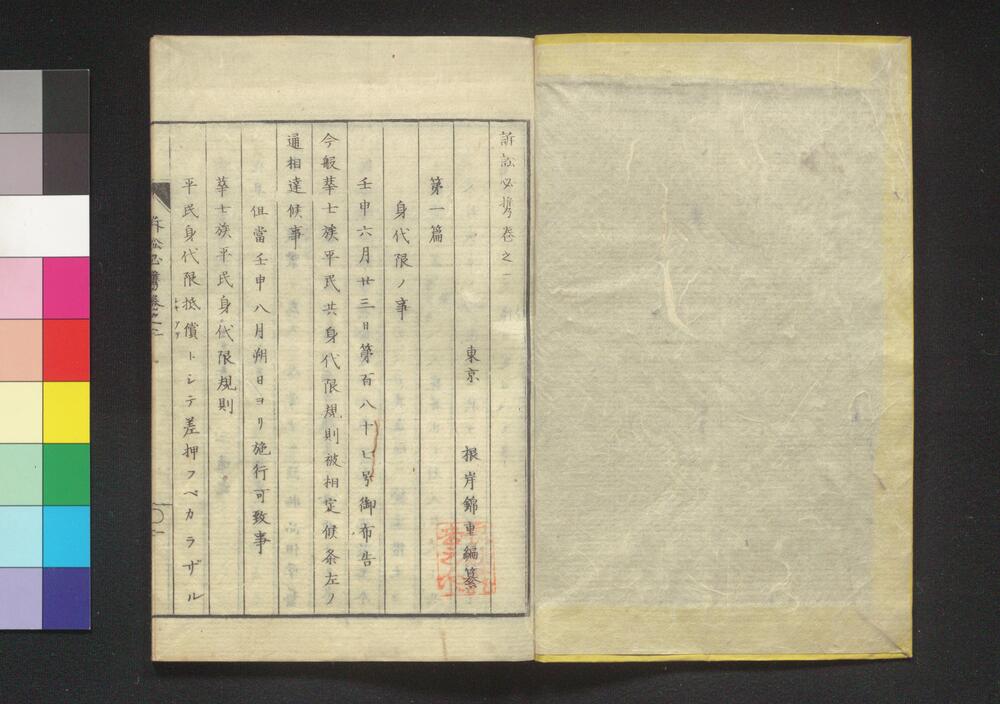 訴訟必携巻之一
東京 根岸錦重編纂
第一篇
身代限ノ事
壬申六月廿三日第百八十七号御布告
今般華士族平民共身代限規則被相定候条左ノ
通相達候事
但當壬申八月朔日ヨリ施行可致事
華士族平民身代限規則
平民身代限抵償トシテ差押フベカラザル
訴訟必携巻之一